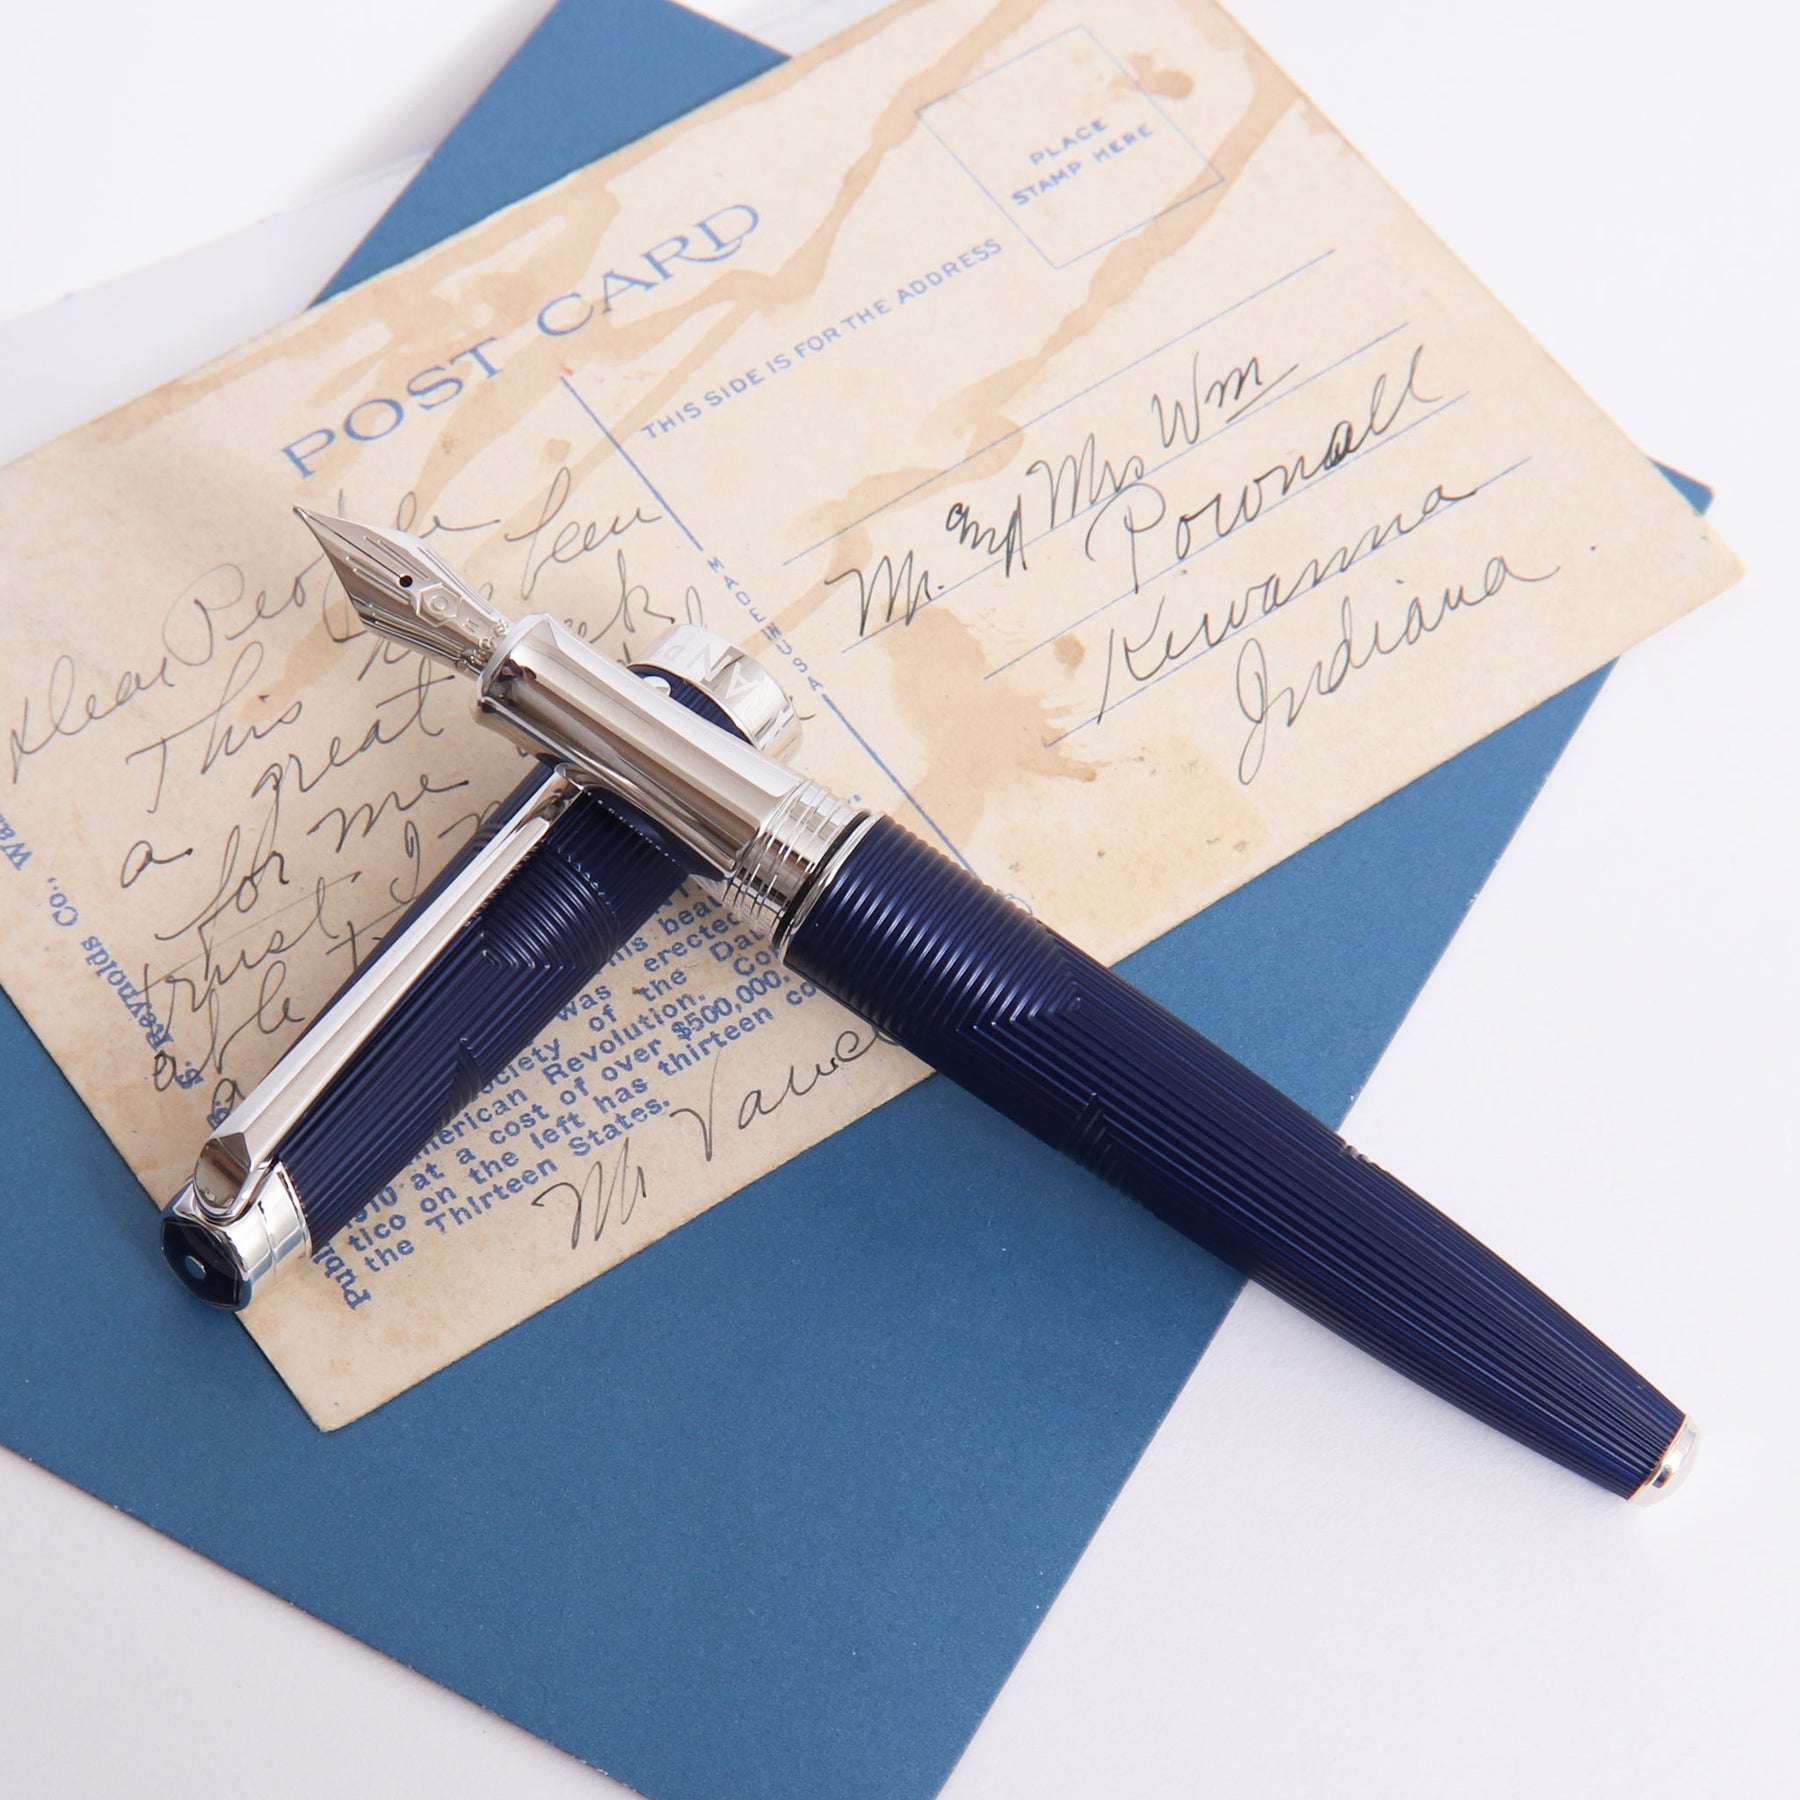 POST CARD
PLACE
STAMP HERE
THIS SIDE IS FOR THE ADDRESS
Mr. and Mrs Wm
Pownall
Kewanna
Indiana.
MADE IN USA
Dear People
This been
a great
for me
trust I
able
Reynolds Co., Wa
this beau
was erected
ociety of the Da
merican Revolution. Co
1910 at a cost of over $500,000.
tico on the left has thirteen co
the Thirteen States.
Publ
M Vance